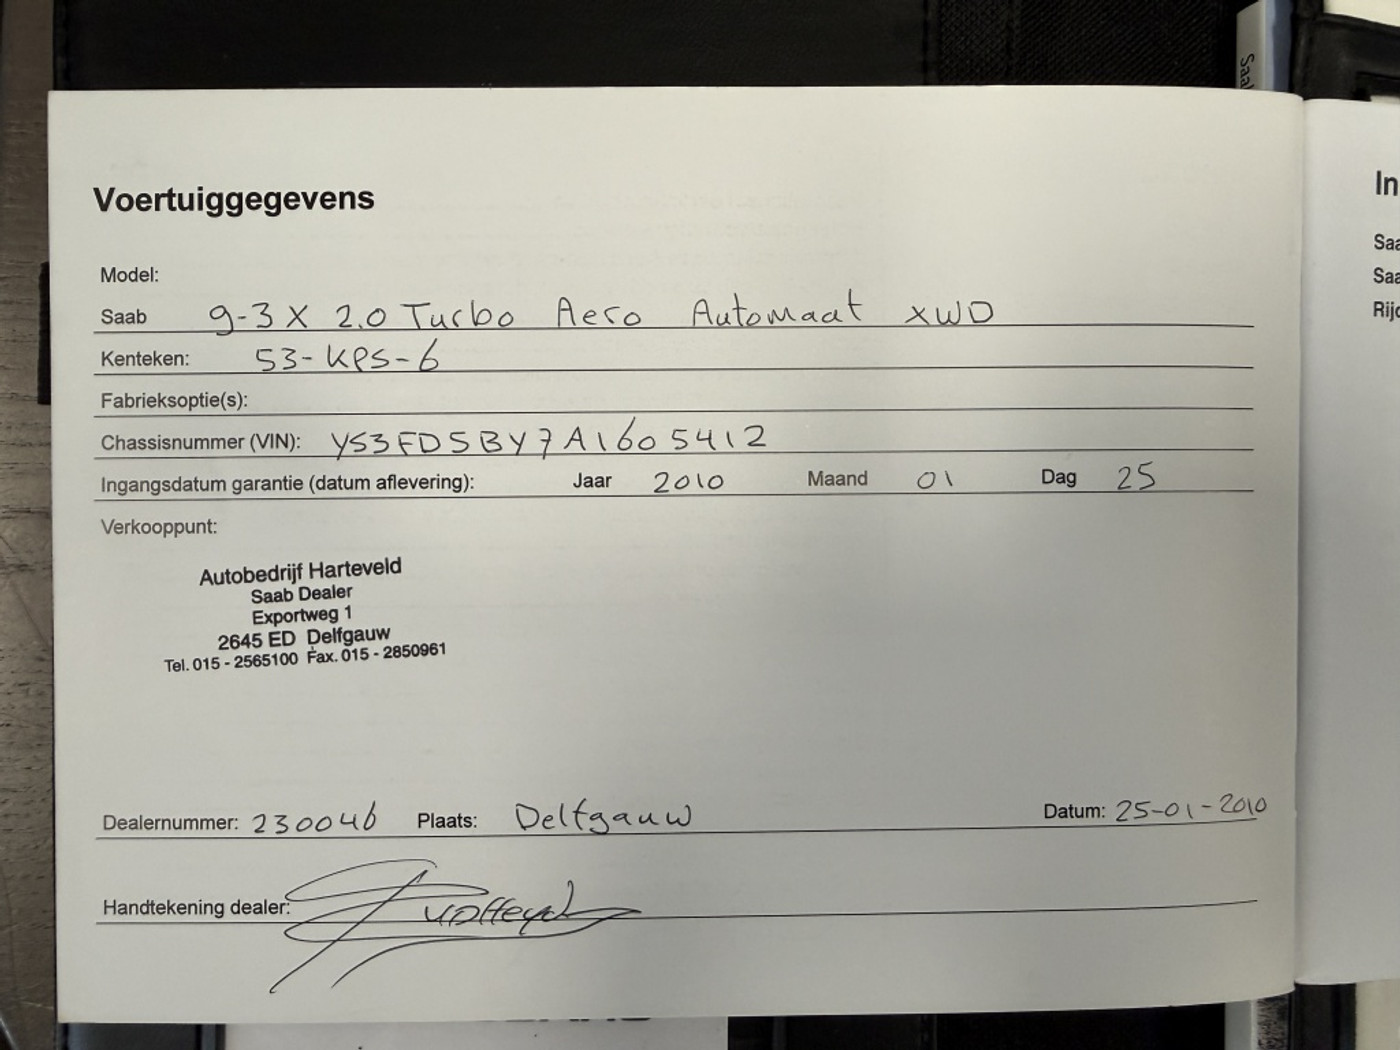 Saa
Voertuiggegevens
Model:
Saab 9-3X 2.0 Turbo Aero Automaat XWD
Kenteken: 53-KPS-6
Fabrieksoptie(s):
Chassisnummer (VIN): YS3FD5BY7A1605412
Ingangsdatum garantie (datum aflevering): Jaar 2010 Maand 01 Dag 25
Verkooppunt:
Autobedrijf Harteveld
Saab Dealer
Exportweg 1
2645 ED Delfgauw
Tel. 015 - 2565100 Fax. 015 - 2850961
Dealernummer: 230046 Plaats: Delfgauw Datum: 25-01-2010
Handtekening dealer:
In
Saa
Saa
Rijc